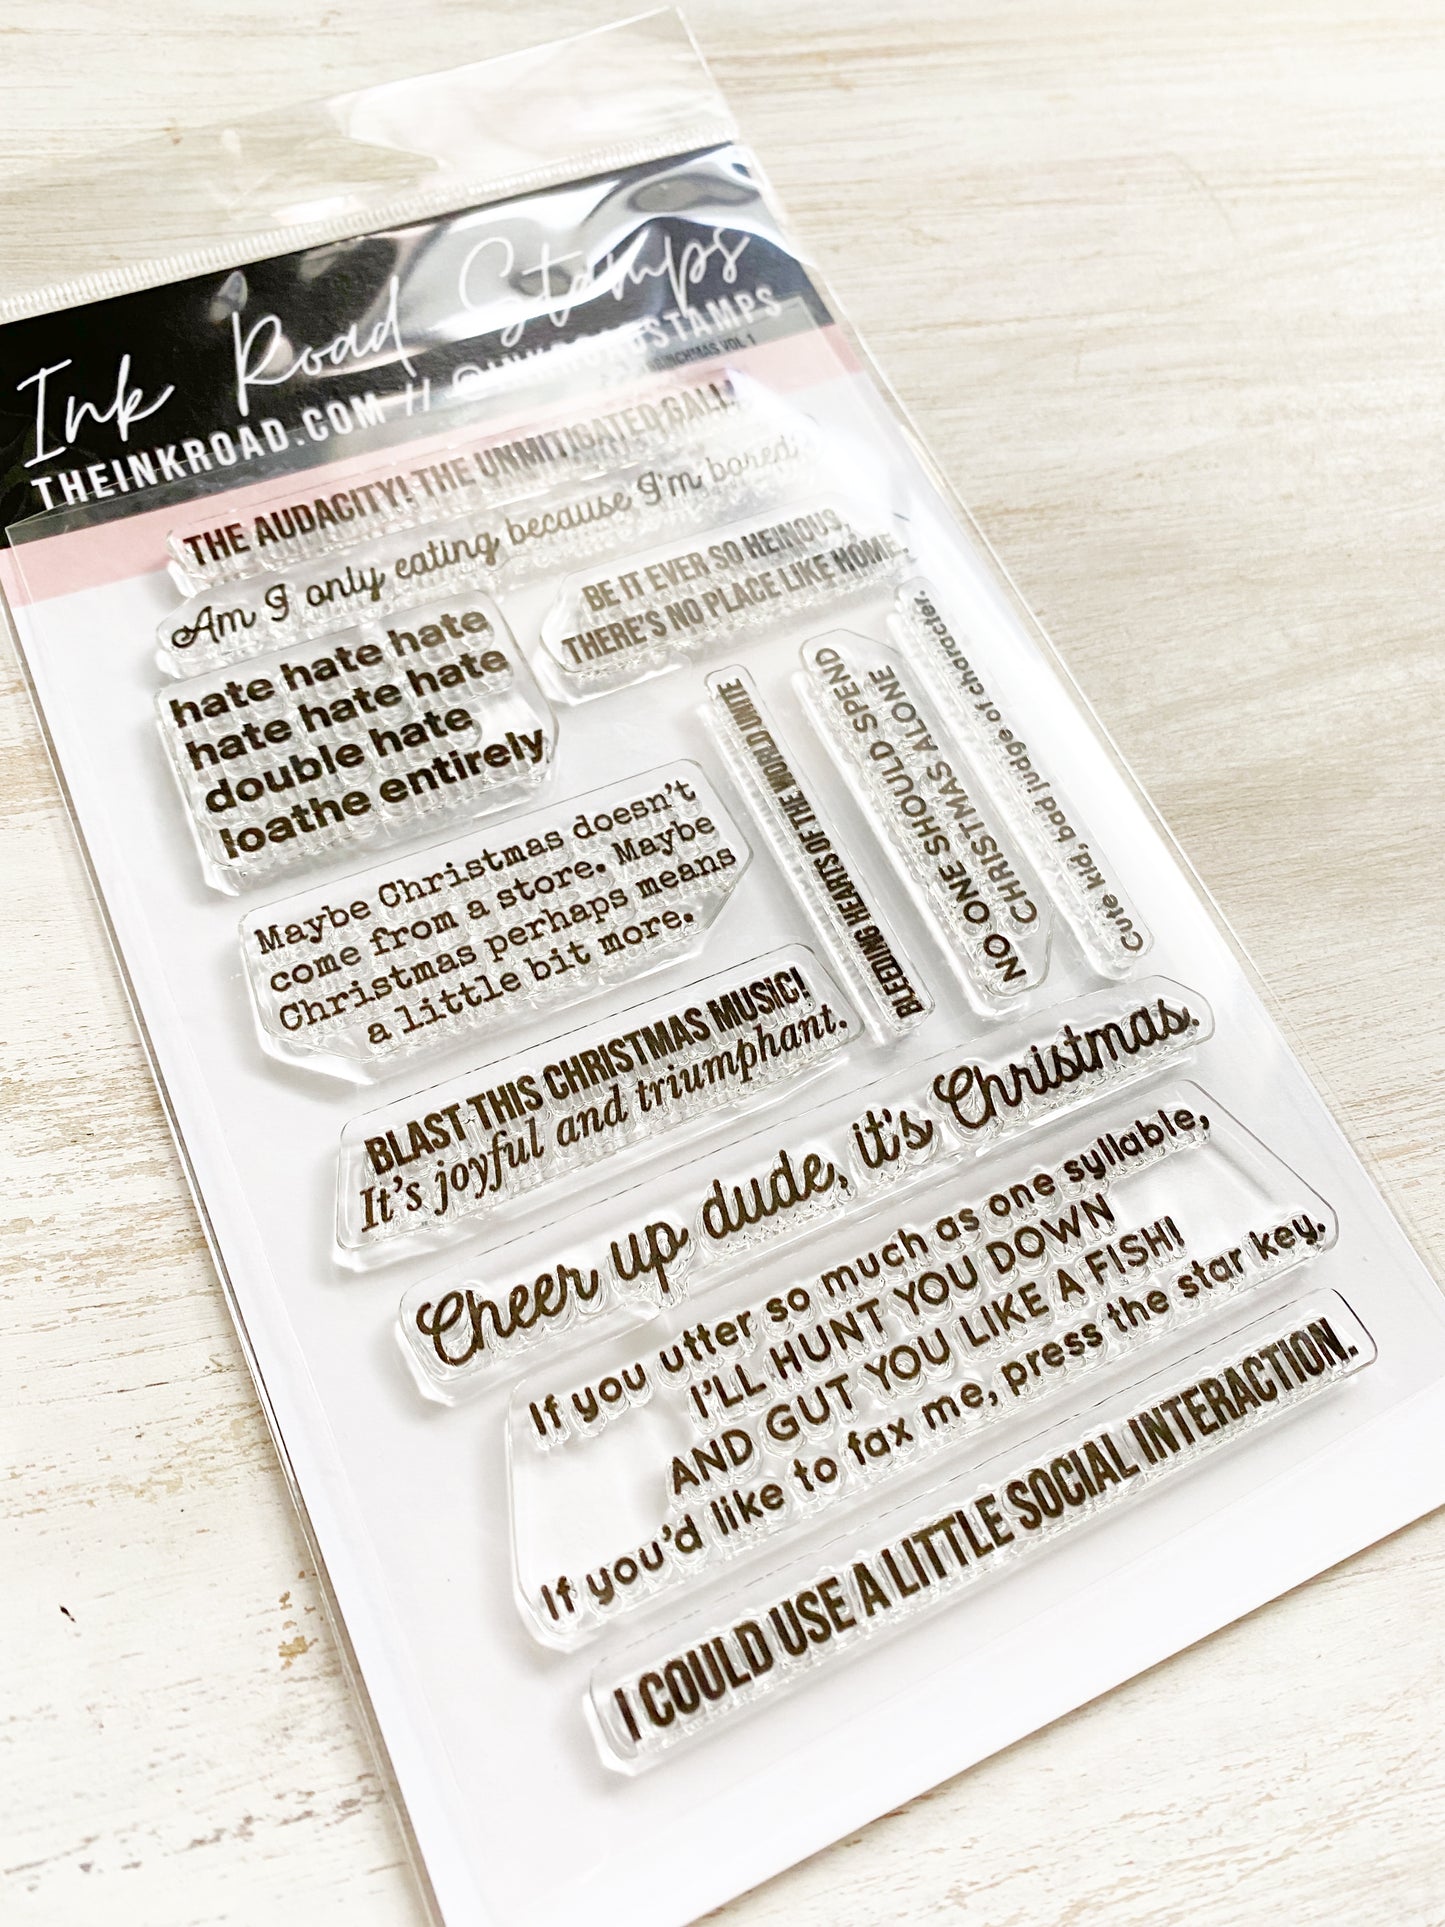 Ink Road Stamps
THEINKROAD.COM // @INKROADSTAMPS
VOL 1
THE AUDACITY! THE UNMITIGATED GALL!
Am I only eating because I'm bored?
BE IT EVER SO HEINOUS,
THERE'S NO PLACE LIKE HOME.
hate hate hate
hate hate hate
double hate
loathe entirely
BLEEDING HEARTS OF THE WORLD UNITE
NO ONE SHOULD SPEND
CHRISTMAS ALONE
Cute kid, bad judge of character.
Maybe Christmas doesn't
come from a store. Maybe
Christmas perhaps means
a little bit more.
BLAST THIS CHRISTMAS MUSIC!
It's joyful and triumphant.
Cheer up dude, it's Christmas.
If you utter so much as one syllable,
I'LL HUNT YOU DOWN
AND GUT YOU LIKE A FISH!
If you'd like to fax me, press the star key.
I COULD USE A LITTLE SOCIAL INTERACTION.